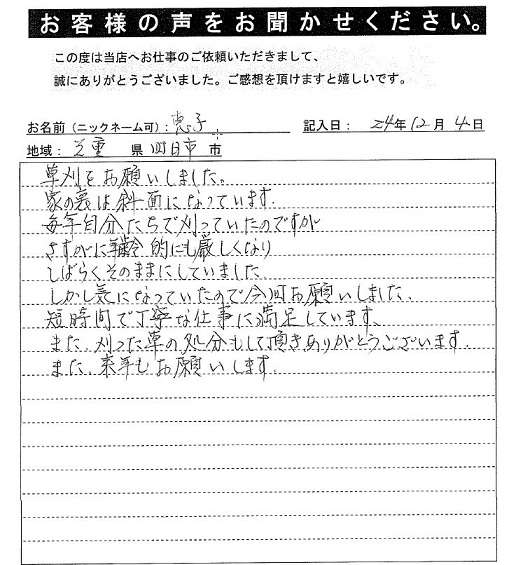 お客様の声をお聞かせください。
この度は当店へお仕事のご依頼いただきまして、
誠にありがとうございました。ご感想を頂けますと嬉しいです。
お名前（ニックネーム可）：恵子 記入日： 24年12月4日
地域： 三重 県 四日市 市
草刈をお願いしました。
家の裏は斜面になっています。
毎年自分たちで刈っていたのですが
さすがに年齢的にも厳しくなり
しばらくそのままにしていました
しかし気になっていたので今回お願いしました。
短時間で丁寧な仕事に満足しています。
また 刈った草の処分もして頂きありがとうございます。
また 来年もお願いします。